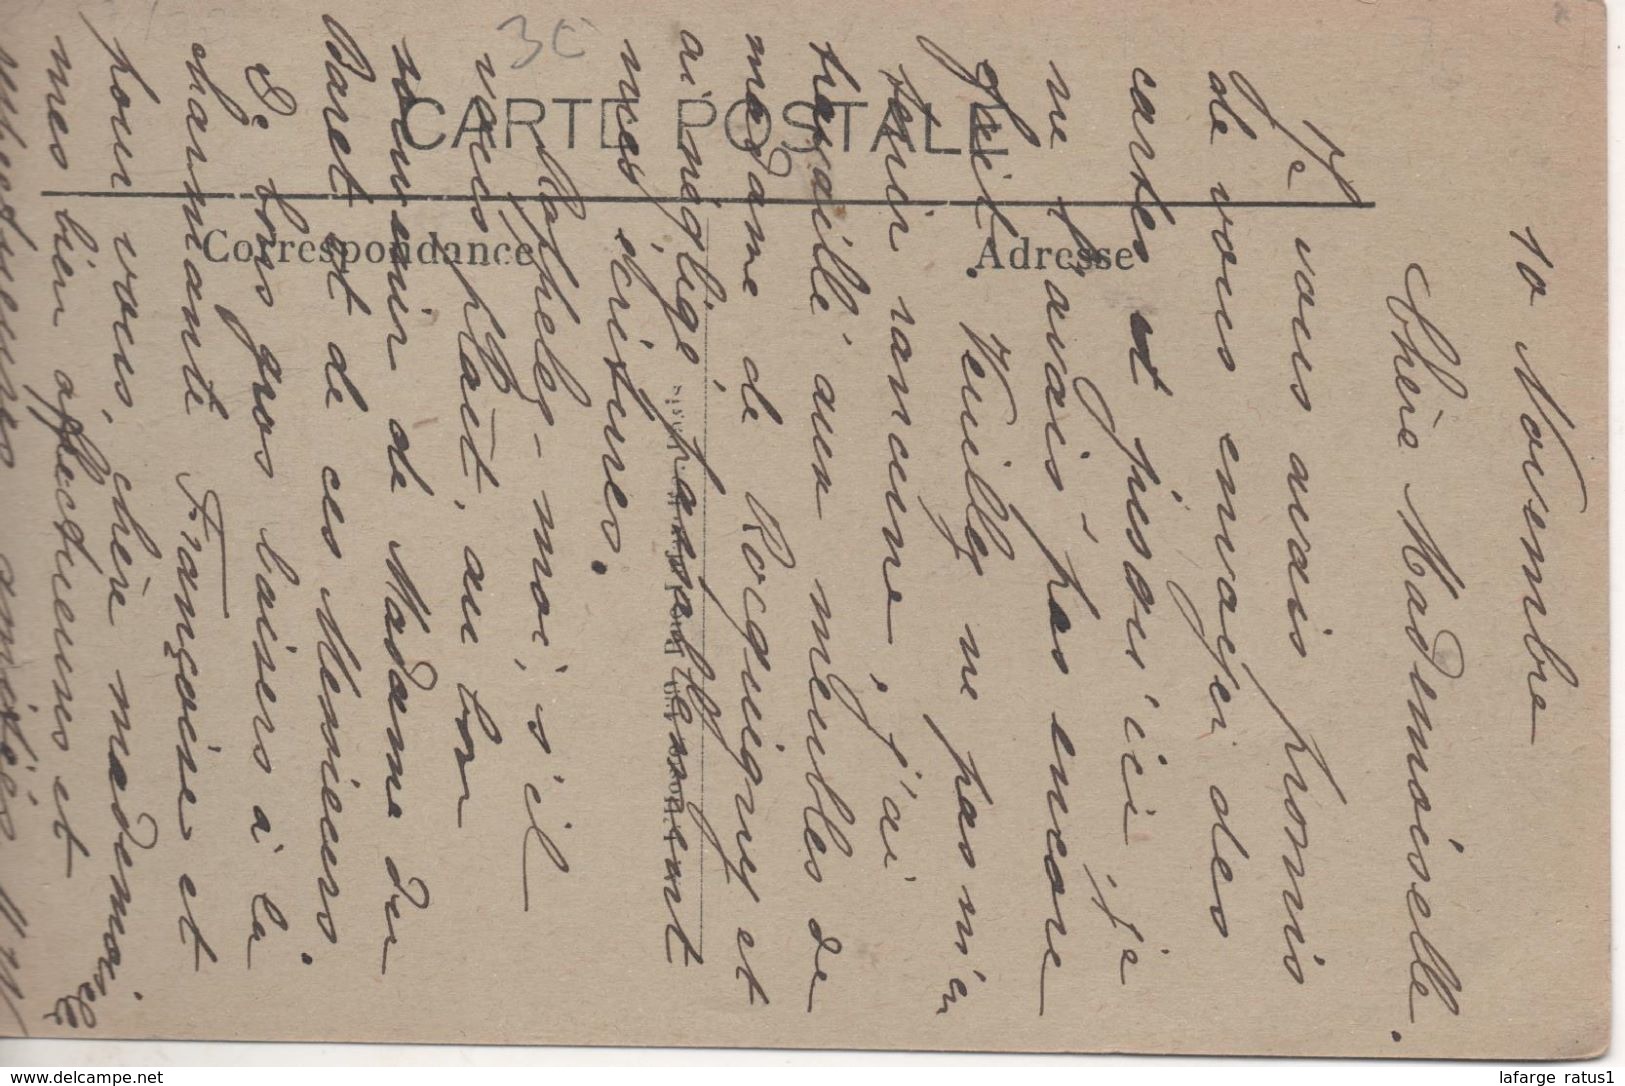 10 Novembre
Chère Mademoiselle.
Je vous avais promis
de vous envoyer des
cartes et jusqu'ici, je
ne l'avais pas encore
fait. Veuillez ne pas m'en
tenir rancune, j'ai
travaillé aux meubles de
madame de Rocquigny et
ai négligé passablement
mes écritures.
Rappelez-moi, s'il
vous plaît, au bon
souvenir de Madame du
Baret et de ces Messieurs.
De bons gros baisers à la
charmante Françoise et
pour vous, chère mademoiselle
mes bien affectueuses et
amitiés
CARTE POSTALE
Correspondance
Adresse
3C
www.delcampe.net
lafarge ratus1